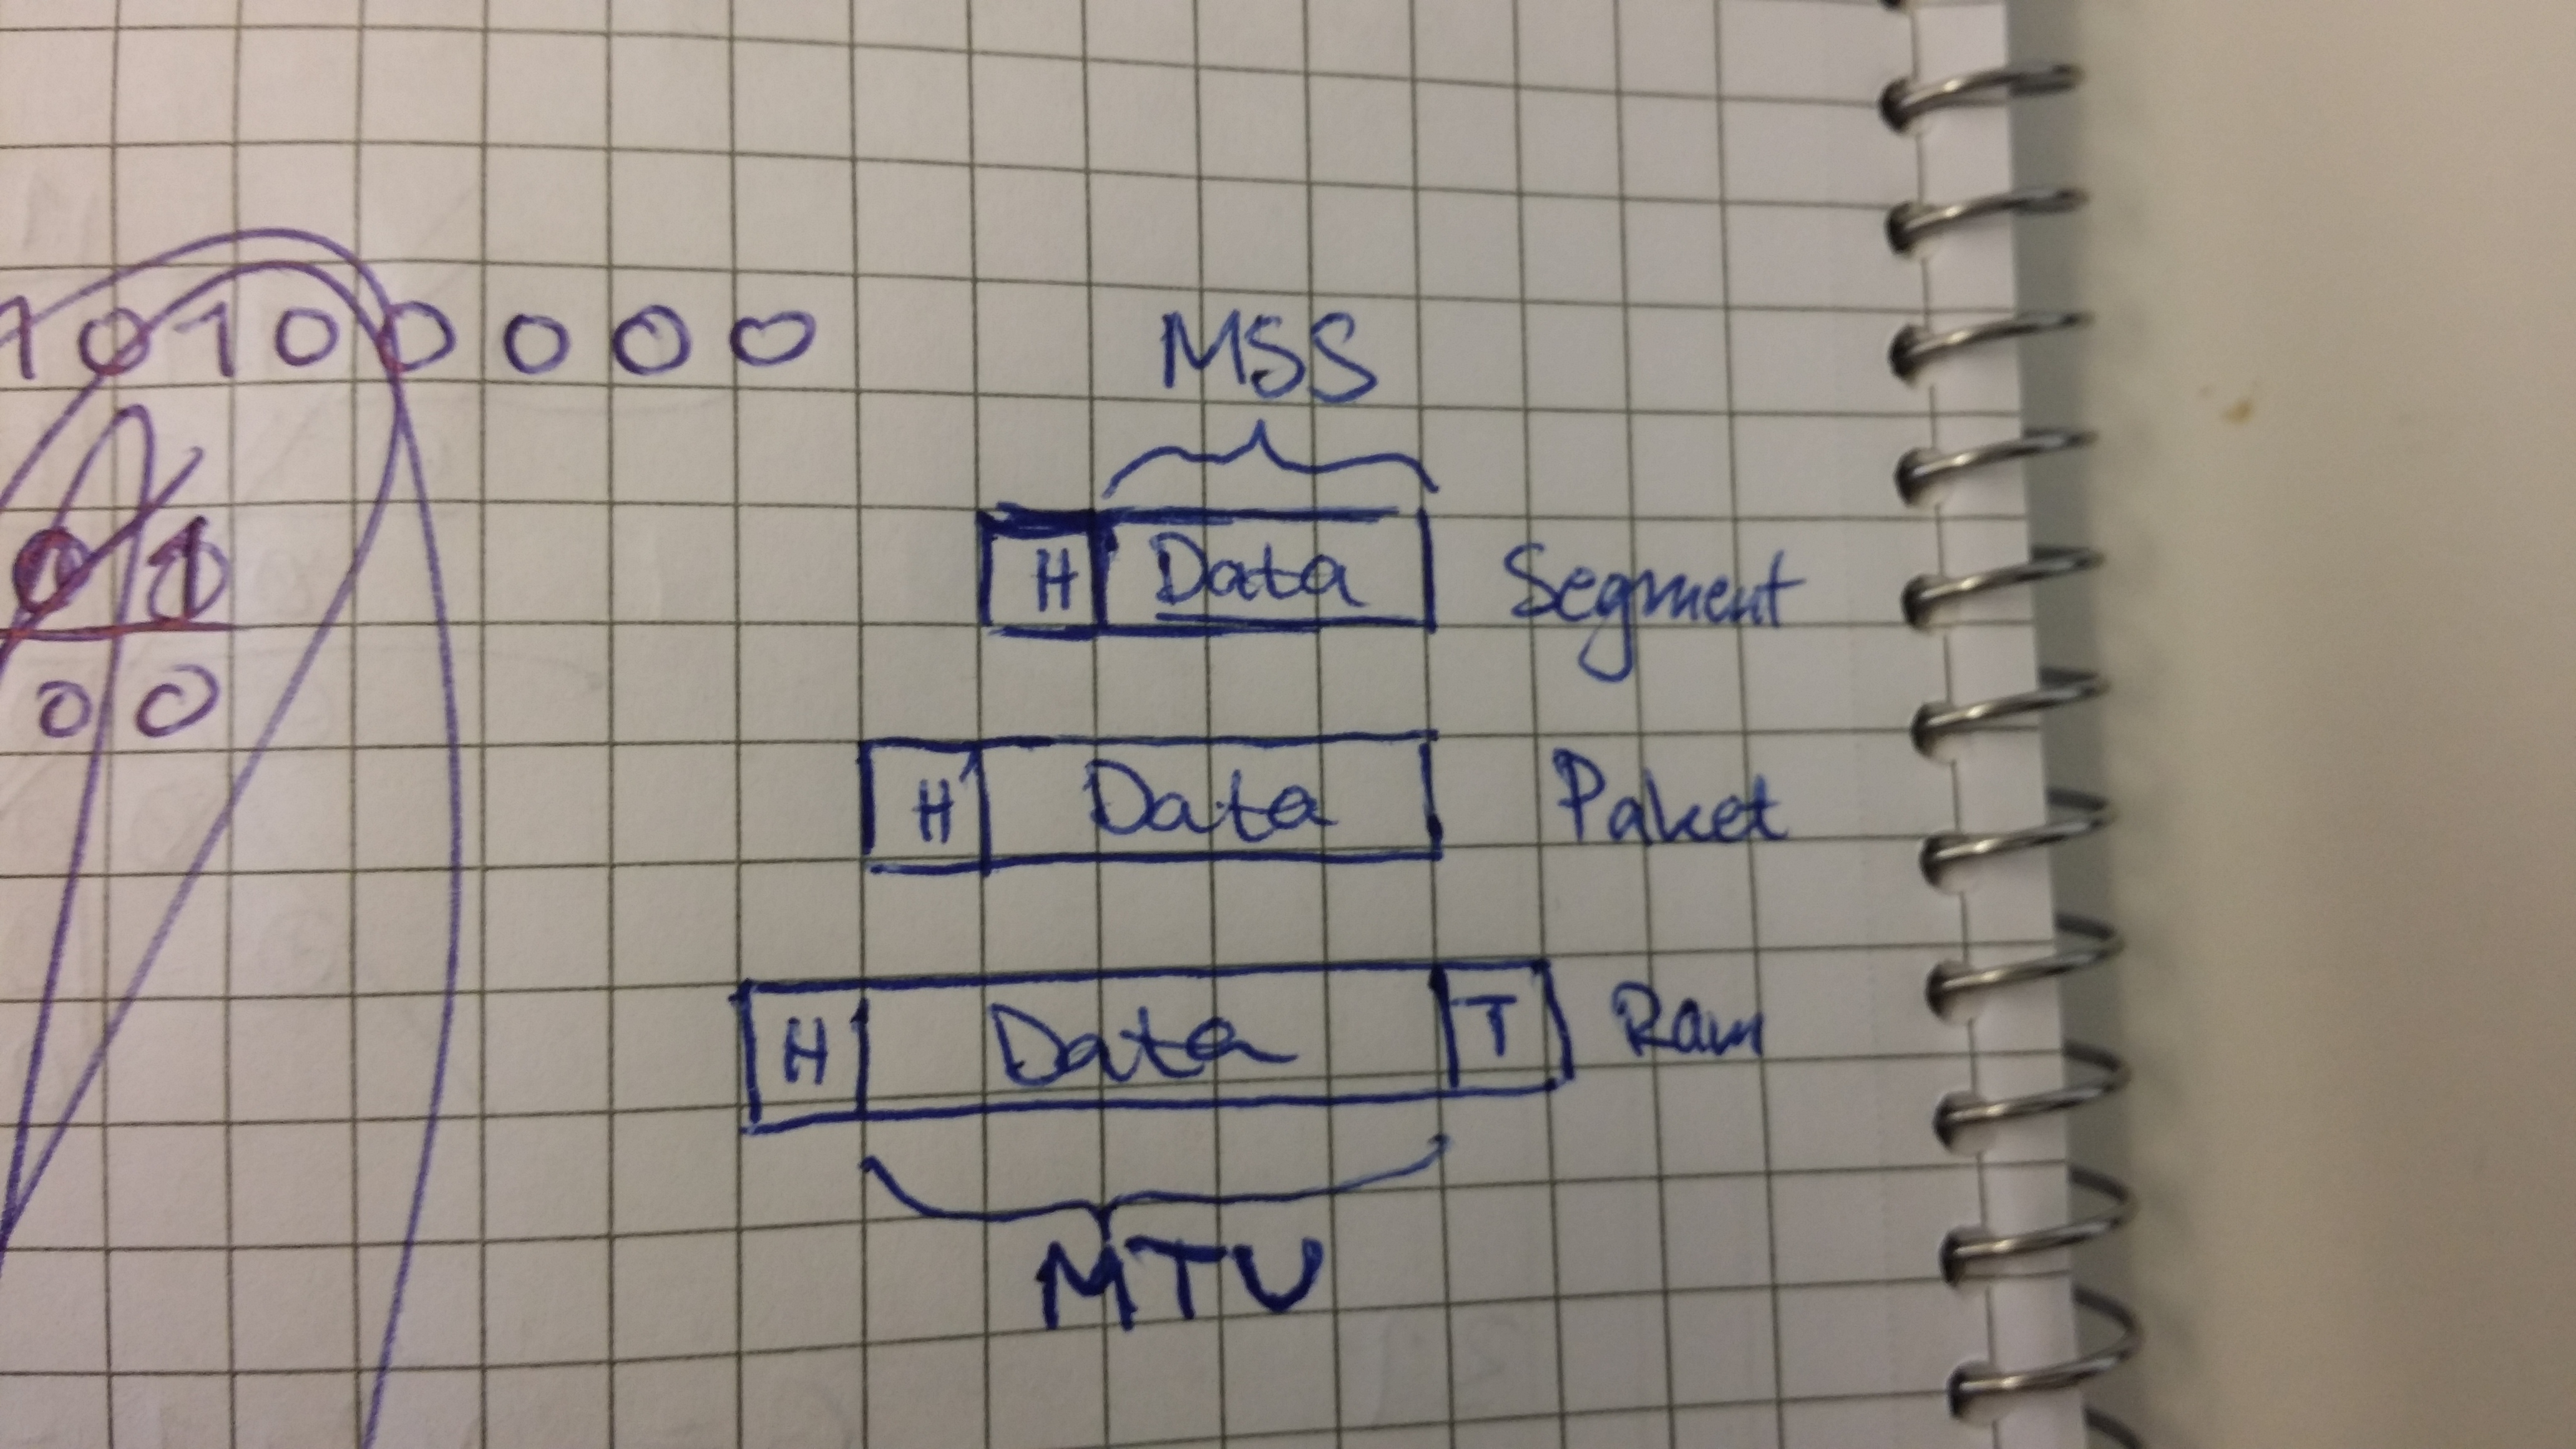 1 0 1 0 0 0 0 0
MSS
H Data Segment
0 0
H Data Paket
H Data T Ram
MTU